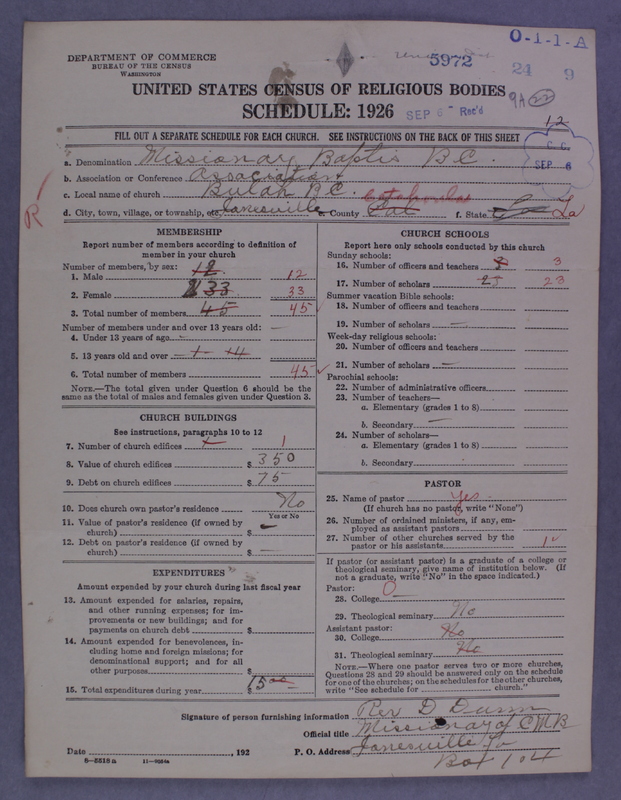 O-1-1-A
DEPARTMENT OF COMMERCE
BUREAU OF THE CENSUS
WASHINGTON
5972
24 9
9A 22
UNITED STATES CENSUS OF RELIGIOUS BODIES
SCHEDULE: 1926
SEP 6 Rec'd
12
FILL OUT A SEPARATE SCHEDULE FOR EACH CHURCH. SEE INSTRUCTIONS ON THE BACK OF THIS SHEET
C C
SEP 6
R
a. Denomination Missionary Baptis B.C.
b. Association or Conference Association
c. Local name of church Bulah B.C.
d. City, town, village, or township, etc. Janesville e. County Cat Catahoulas f. State La
MEMBERSHIP
Report number of members according to definition of member in your church
Number of members, by sex:
1. Male 12 12
2. Female 33 33
3. Total number of members 45 45
Number of members under and over 13 years old:
4. Under 13 years of age
5. 13 years old and over
6. Total number of members 45
NOTE.—The total given under Question 6 should be the same as the total of males and females given under Question 3.
CHURCH BUILDINGS
See instructions, paragraphs 10 to 12
7. Number of church edifices 1
8. Value of church edifices $ 350
9. Debt on church edifices $ 75
10. Does church own pastor's residence No
Yes or No
11. Value of pastor's residence (if owned by church) $ —
12. Debt on pastor's residence (if owned by church) $ —
EXPENDITURES
Amount expended by your church during last fiscal year
13. Amount expended for salaries, repairs, and other running expenses; for improvements or new buildings; and for payments on church debt $
14. Amount expended for benevolences, including home and foreign missions; for denominational support; and for all other purposes $
15. Total expenditures during year $ 15 00
CHURCH SCHOOLS
Report here only schools conducted by this church
Sunday schools:
16. Number of officers and teachers 3 3
17. Number of scholars 23
Summer vacation Bible schools:
18. Number of officers and teachers
19. Number of scholars —
Week-day religious schools:
20. Number of officers and teachers
21. Number of scholars —
Parochial schools:
22. Number of administrative officers
23. Number of teachers—
a. Elementary (grades 1 to 8)
b. Secondary —
24. Number of scholars—
a. Elementary (grades 1 to 8)
b. Secondary
PASTOR
25. Name of pastor Yes
(If church has no pastor, write "None")
26. Number of ordained ministers, if any, employed as assistant pastors
27. Number of other churches served by the pastor or his assistants 1
If pastor (or assistant pastor) is a graduate of a college or theological seminary, give name of institution below. (If not a graduate, write "No" in the space indicated.)
Pastor: O
28. College —
29. Theological seminary No
Assistant pastor:
30. College No
31. Theological seminary No
NOTE.—Where one pastor serves two or more churches, Questions 28 and 29 should be answered only on the schedule for one of the churches; on the schedules for the other churches, write "See schedule for church."
Signature of person furnishing information Rev D Dunn
Official title Missionary of C.M.B
Date , 192 P. O. Address Janesville La
Box 104
8—5518 a 11—9264a